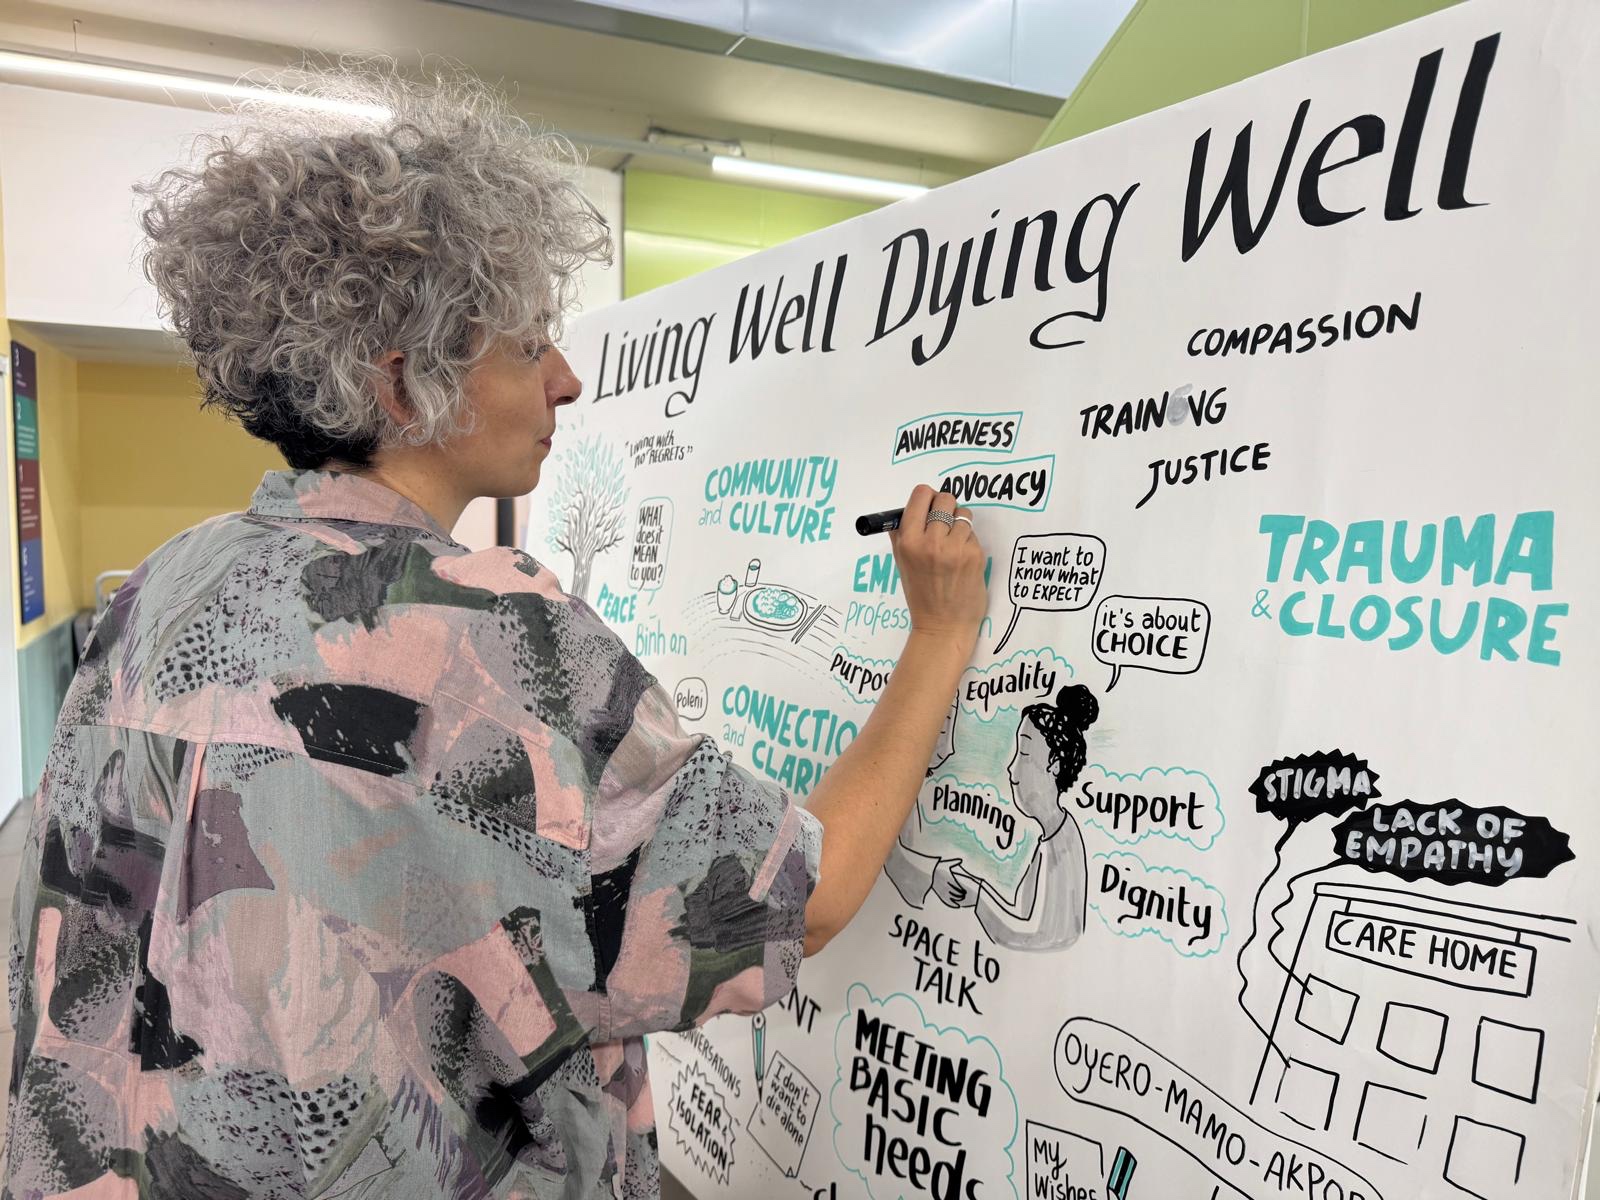 Living Well Dying Well
COMPASSION
TRAINING
JUSTICE
AWARENESS
ADVOCACY
"Living with
no REGRETS"
COMMUNITY
and CULTURE
WHAT
does it
MEAN
to you?
PEACE
Bình an
I want to
know what
to EXPECT
it's about
CHOICE
TRAUMA
& CLOSURE
Equality
Poleni
CONNECTIO
and CLARI
Planning
Support
Dignity
SPACE to
TALK
STIGMA
LACK OF
EMPATHY
CARE HOME
CONVERSATIONS
FEAR &
ISOLATION
I don't
want to
die alone
MEETING
BASIC
needs
OYERO-MAMO-AKPO
My
Wishes